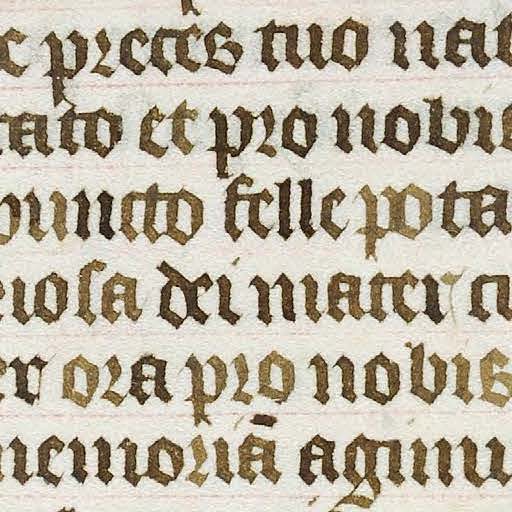 c preces tuo nat
tato et pro nobis
punicto felle pota
eiosa dei mater tu
er ora pro nobis
memoriā agimu